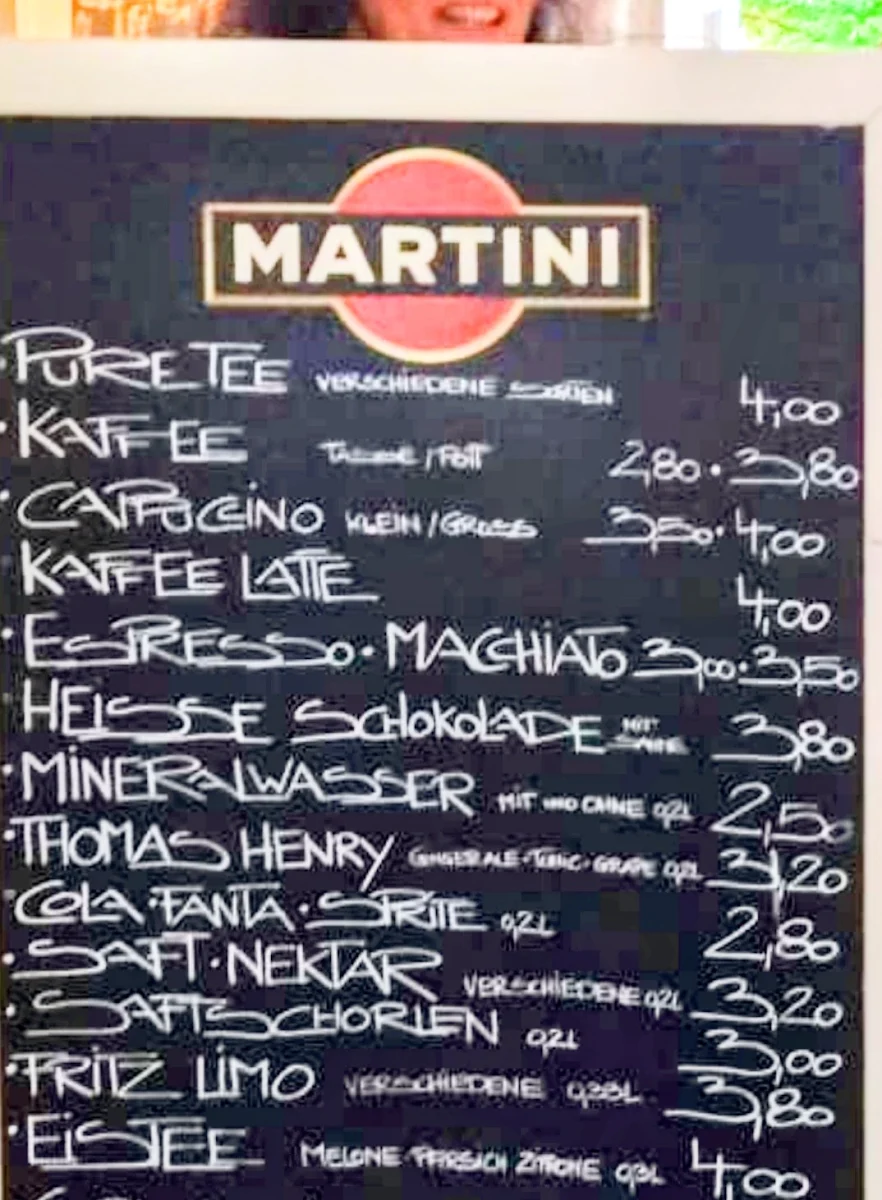 MARTINI
· PURE TEE VERSCHIEDENE SORTEN 4,00
· KAFFEE TASSE / POTT 2,80 · 3,80
· CAPPUCCINO KLEIN / GROSS 3,50 · 4,00
KAFFEE LATTE 4,00
· ESPRESSO · MACCHIATO 3,00 · 3,50
HEISSE SCHOKOLADE MIT SAHNE 3,80
· MINERALWASSER MIT UND OHNE 0,2L 2,50
· THOMAS HENRY GINGER ALE · TONIC · GRAPE 0,2L 3,20
COLA · FANTA · SPRITE 0,2L 2,80
· SAFT · NEKTAR VERSCHIEDENE 0,2L 3,20
· SAFTSCHORLEN 0,2L 3,00
· FRITZ LIMO VERSCHIEDENE 0,33L 3,80
· EISTEE MELONE PFIRSICH ZITRONE 0,3L 4,00